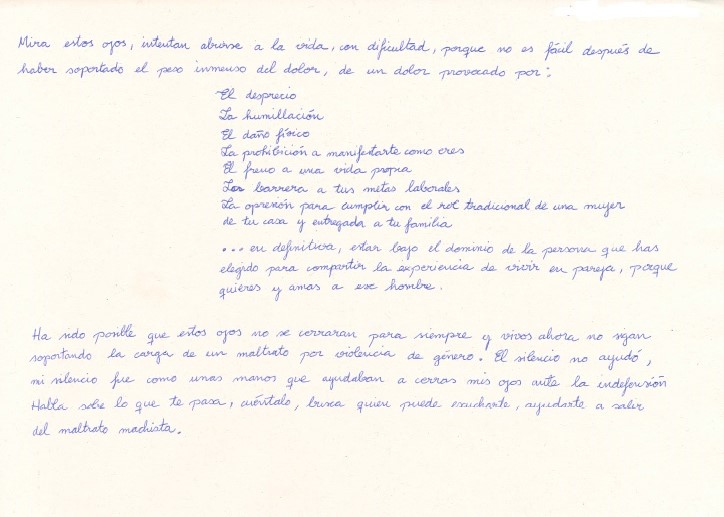 Mira estos ojos, intentan abrirse a la vida, con dificultad, porque no es fácil después de
haber soportado el peso inmenso del dolor, de un dolor provocado por:
El desprecio
La humillación
El daño físico
La prohibición a manifestarte como eres
El freno a una vida propia
La barrera a tus metas laborales
La opresión para cumplir con el rol tradicional de una mujer
de tu casa y entregada a tu familia
... en definitiva, estar bajo el dominio de la persona que has
elegido para compartir la experiencia de vivir en pareja, porque
quieres y amas a ese hombre.
Ha sido posible que estos ojos no se cerraran para siempre y vivos ahora no sigan
soportando la carga de un maltrato por violencia de género. El silencio no ayudó,
mi silencio fue como unas manos que ayudaban a cerrar mis ojos ante la indefensión
Habla sobre lo que te pasa, cuéntalo, busca quien puede escucharte, ayudarte a salir
del maltrato machista.